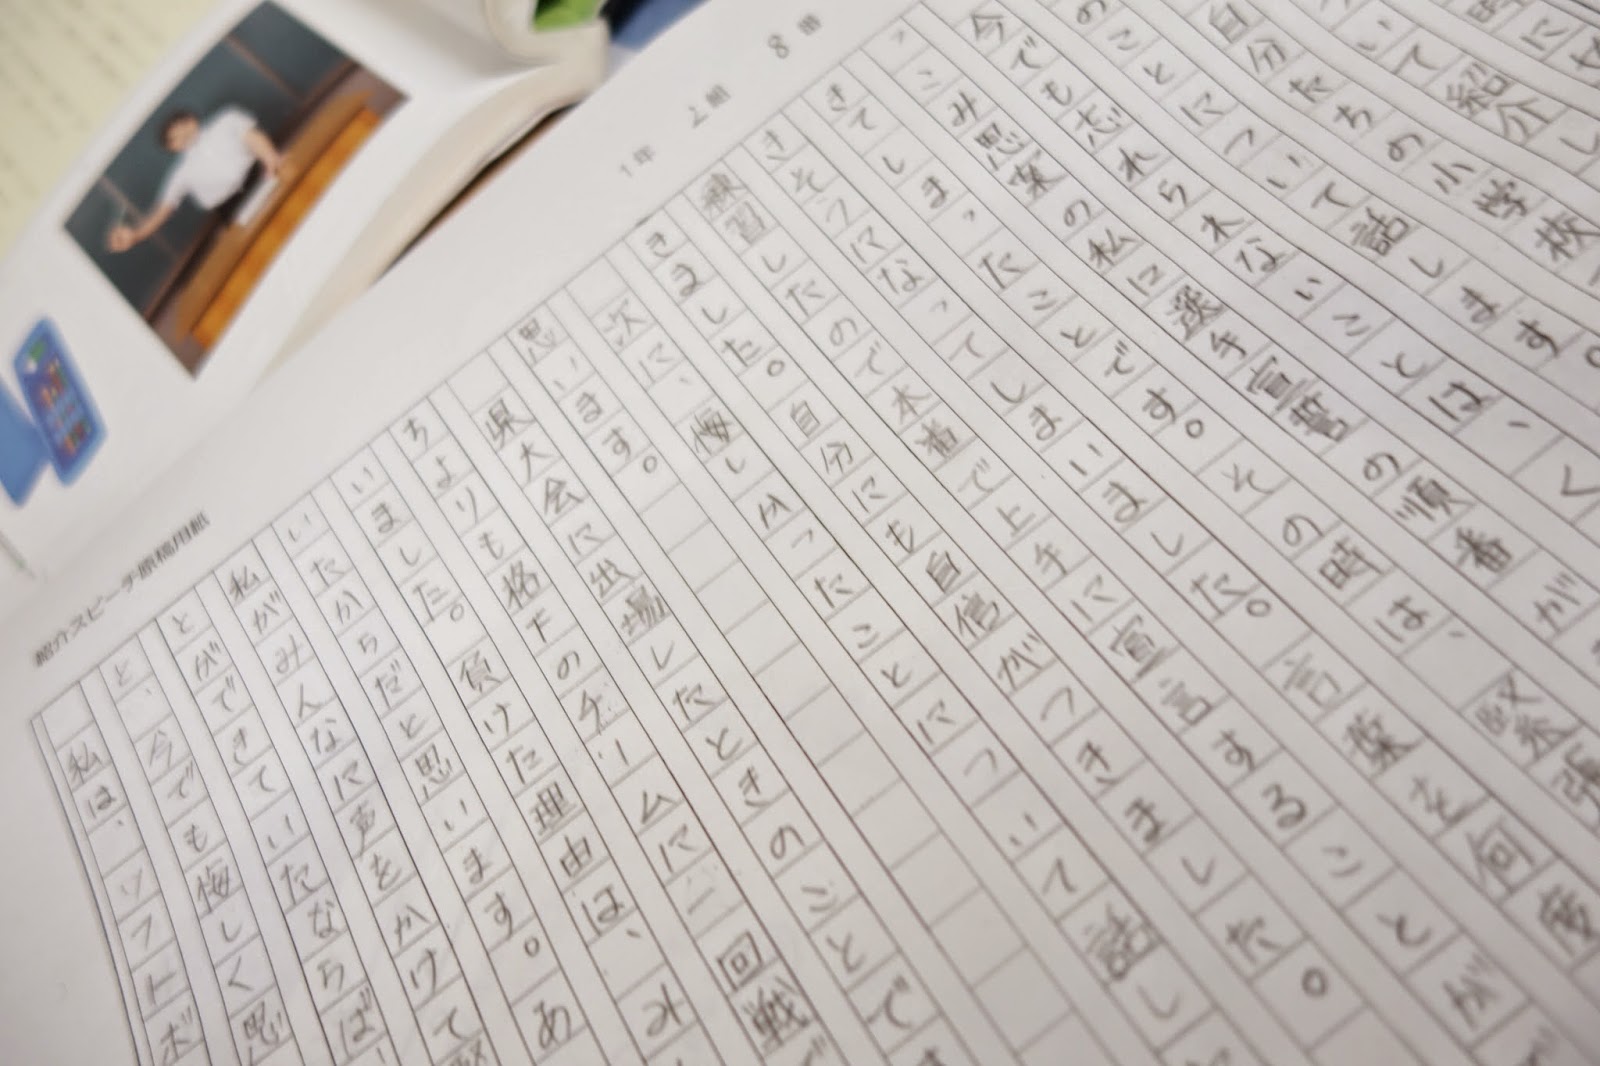 紹介スピーチ原稿用紙
1年 2組 8番
時に
いて紹介し
自分たちの小学校
のことについて話します。
今でも忘れられないことは、
っこみ思案の私に選手宣誓の順番が
きてしまったことです。その時は、緊張
きそうになってしまいました。言葉を何度
練習したので本番で上手に宣言することが
きました。自分にも自信がつきました。
次に、悔しかったことについて話し
思います。
県大会に出場したときのことで
ちよりも格下のチームに二回戦で
いました。負けた理由は、み
いたからだと思います。あ
私がみんなに声をかけて
とができていたならば、
と、今でも悔しく思
私は、ソフトボ